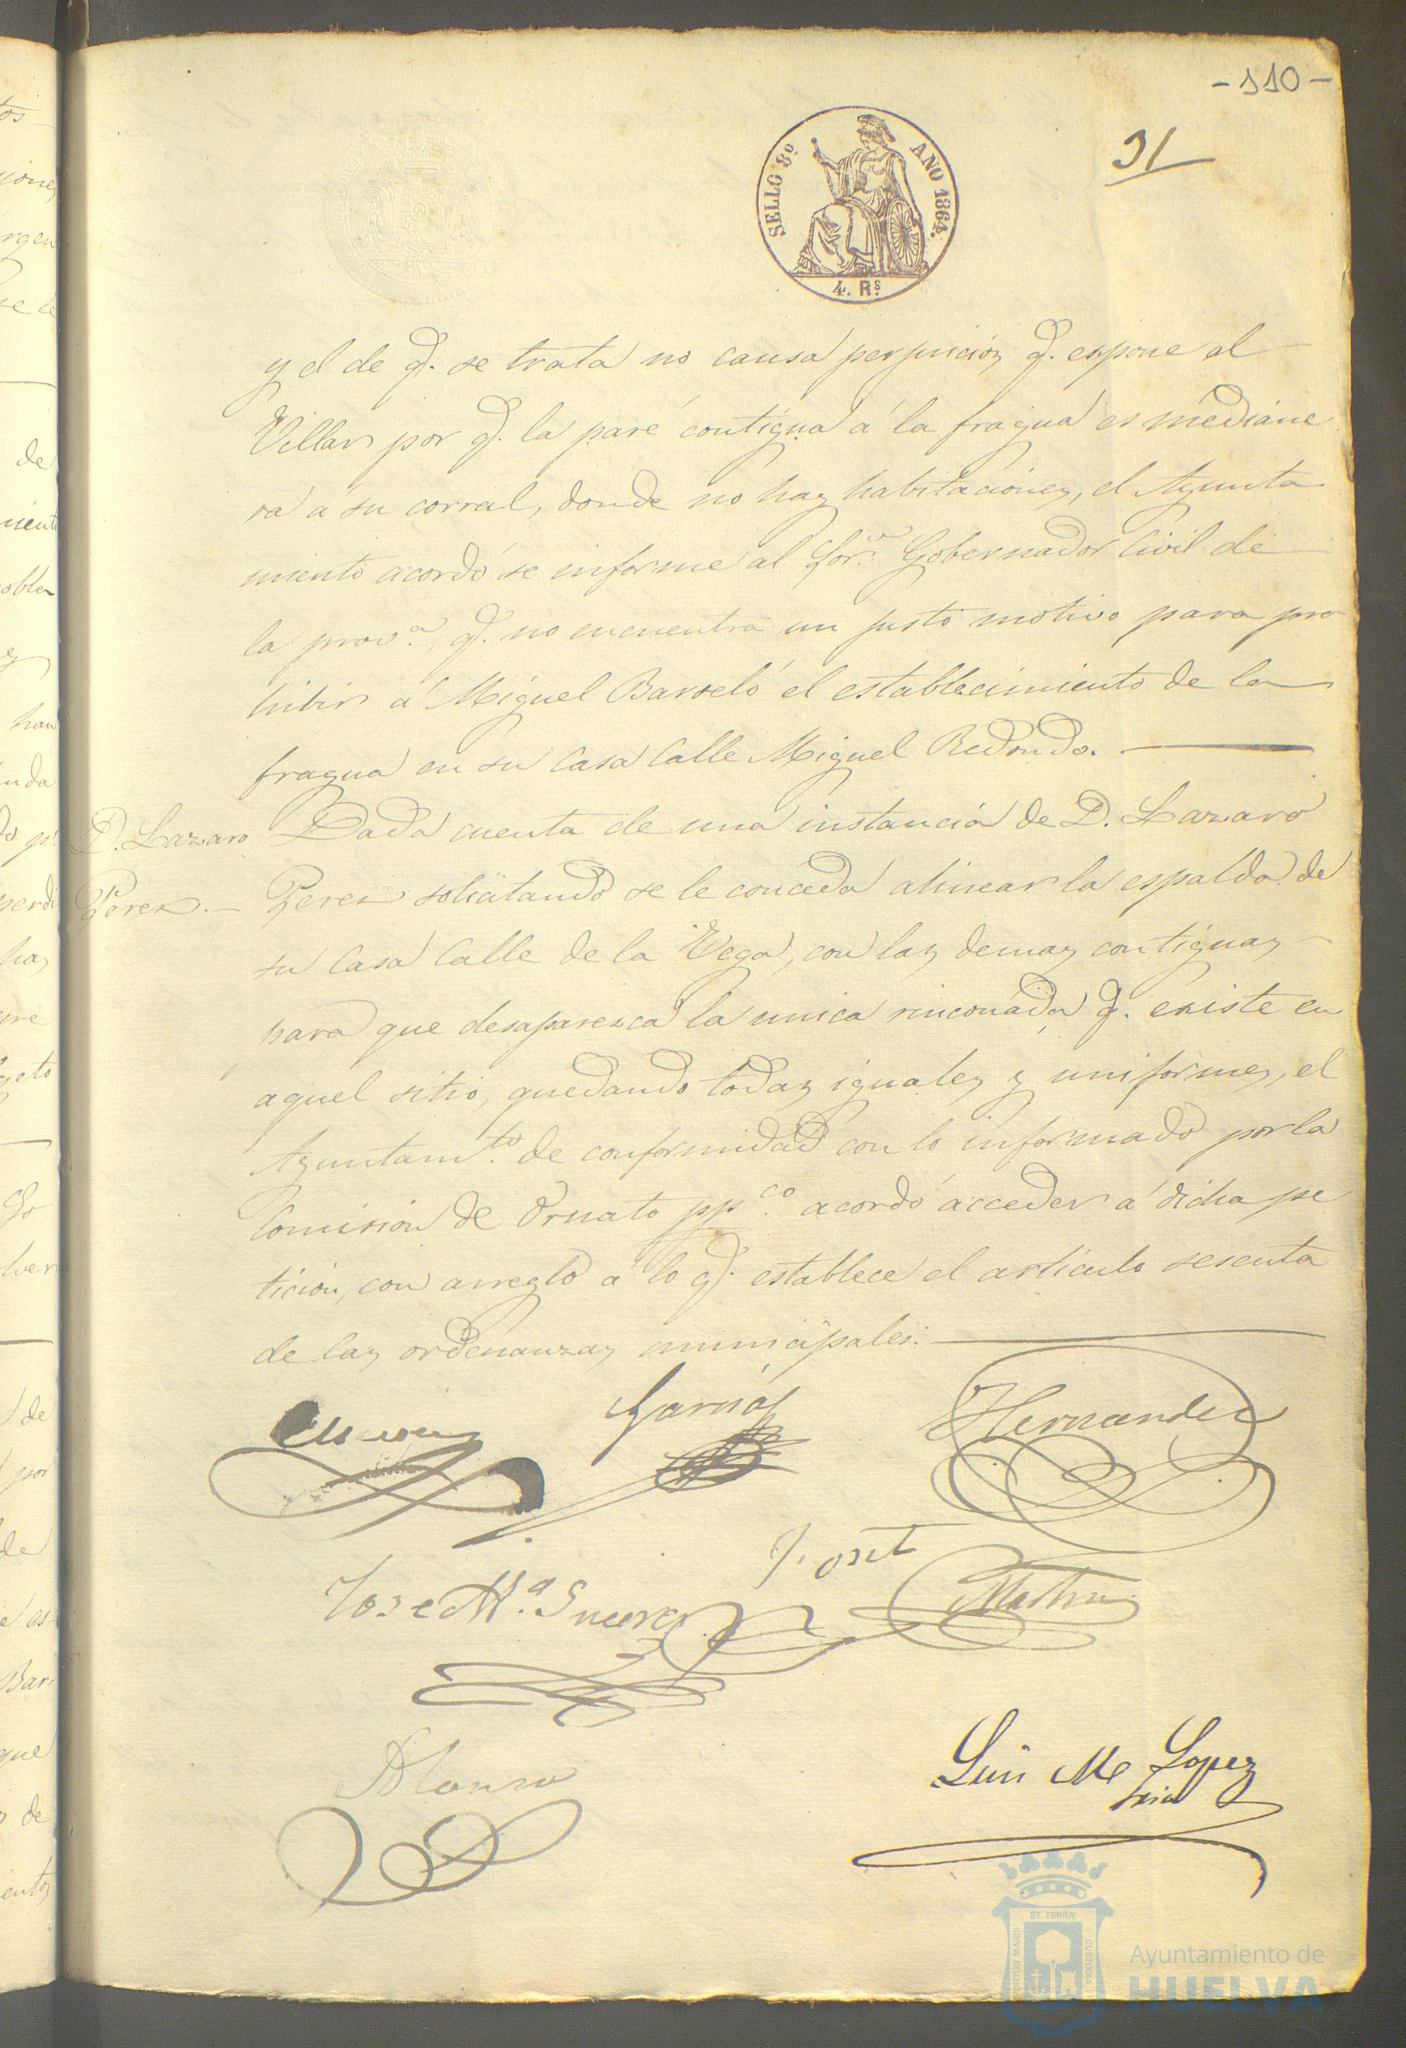 -110-
31
SELLO 8º AÑO 1864.
4. Rs
y el de q. se trata no causa perjuicios q. espone al
Villar por q. la paré contigua á la fragua es mediane
ra á su corral, donde no hay habitaciones, el Ayunta
miento acordó se informe al Sor. Gobernador Civil de
la prova. q. no encuentra un justo motivo para pro
hibir á Miguel Barseló el establecimiento de la
fragua en su Casa Calle Miguel Redondo.
D. Lazaro
Perez.
Dada cuenta de una instancia de D. Lazaro
Perez solicitando se le conceda alinear la espalda de
su Casa Calle de la Vega, con las demas contiguas
para que desaparezca la unica rinconada q. existe en
aquel sitio, quedando todas iguales y uniformes, el
Ayuntamto. de conformidad con lo informado por la
Comision de Ornato ppco. acordó acceder á dicha pe
ticion, con arreglo á lo q. establece el artículo sesenta
de las ordenanzas municipales.
Garcia
Hernandez
Jose Mª Suarez
Martin
Alonso
Luis M Lopez
Srio
ET TERRA
PORTUS MARIS
CUSTODIA
Ayuntamiento de
HUELVA